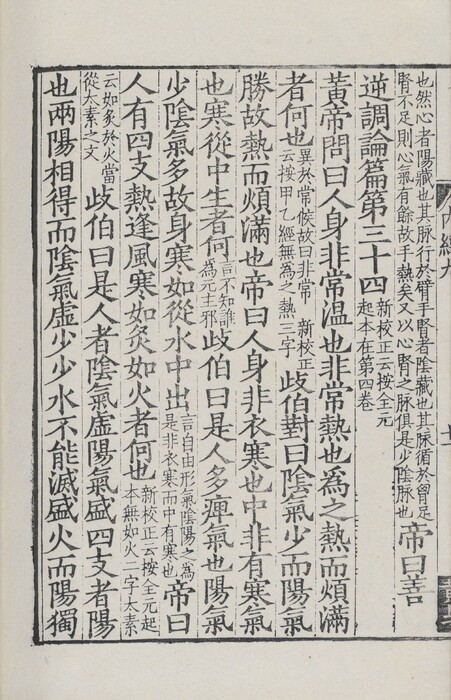 也然心者陽藏也其脉行於臂手腎者陰藏也其脉循於胷足
腎不足則心氣有餘故手熱矣又以心腎之脉俱是少陰脉也
帝曰善
逆調論篇第三十四
新校正云按全元
起本在第四卷
黃帝問曰人身非常温也非常熱也為之熱而煩滿
者何也
異於常候故曰非常 新校正
云按甲乙經無為之熱三字
歧伯對曰陰氣少而陽氣
勝故熱而煩滿也帝曰人身非衣寒也中非有寒氣
也寒從中生者何
言不知誰
為元主邪
歧伯曰是人多痺氣也陽氣
少陰氣多故身寒如從水中出
言自由形氣陰陽之為
是非衣寒而中有寒也
帝曰
人有四支熱逢風寒如炙如火者何也
新校正云按全元起
本無如火二字太素
云如炙於火當
從太素之文
歧伯曰是人者陰氣虛陽氣盛四支者陽
也兩陽相得而陰氣虛少少水不能滅盛火而陽獨